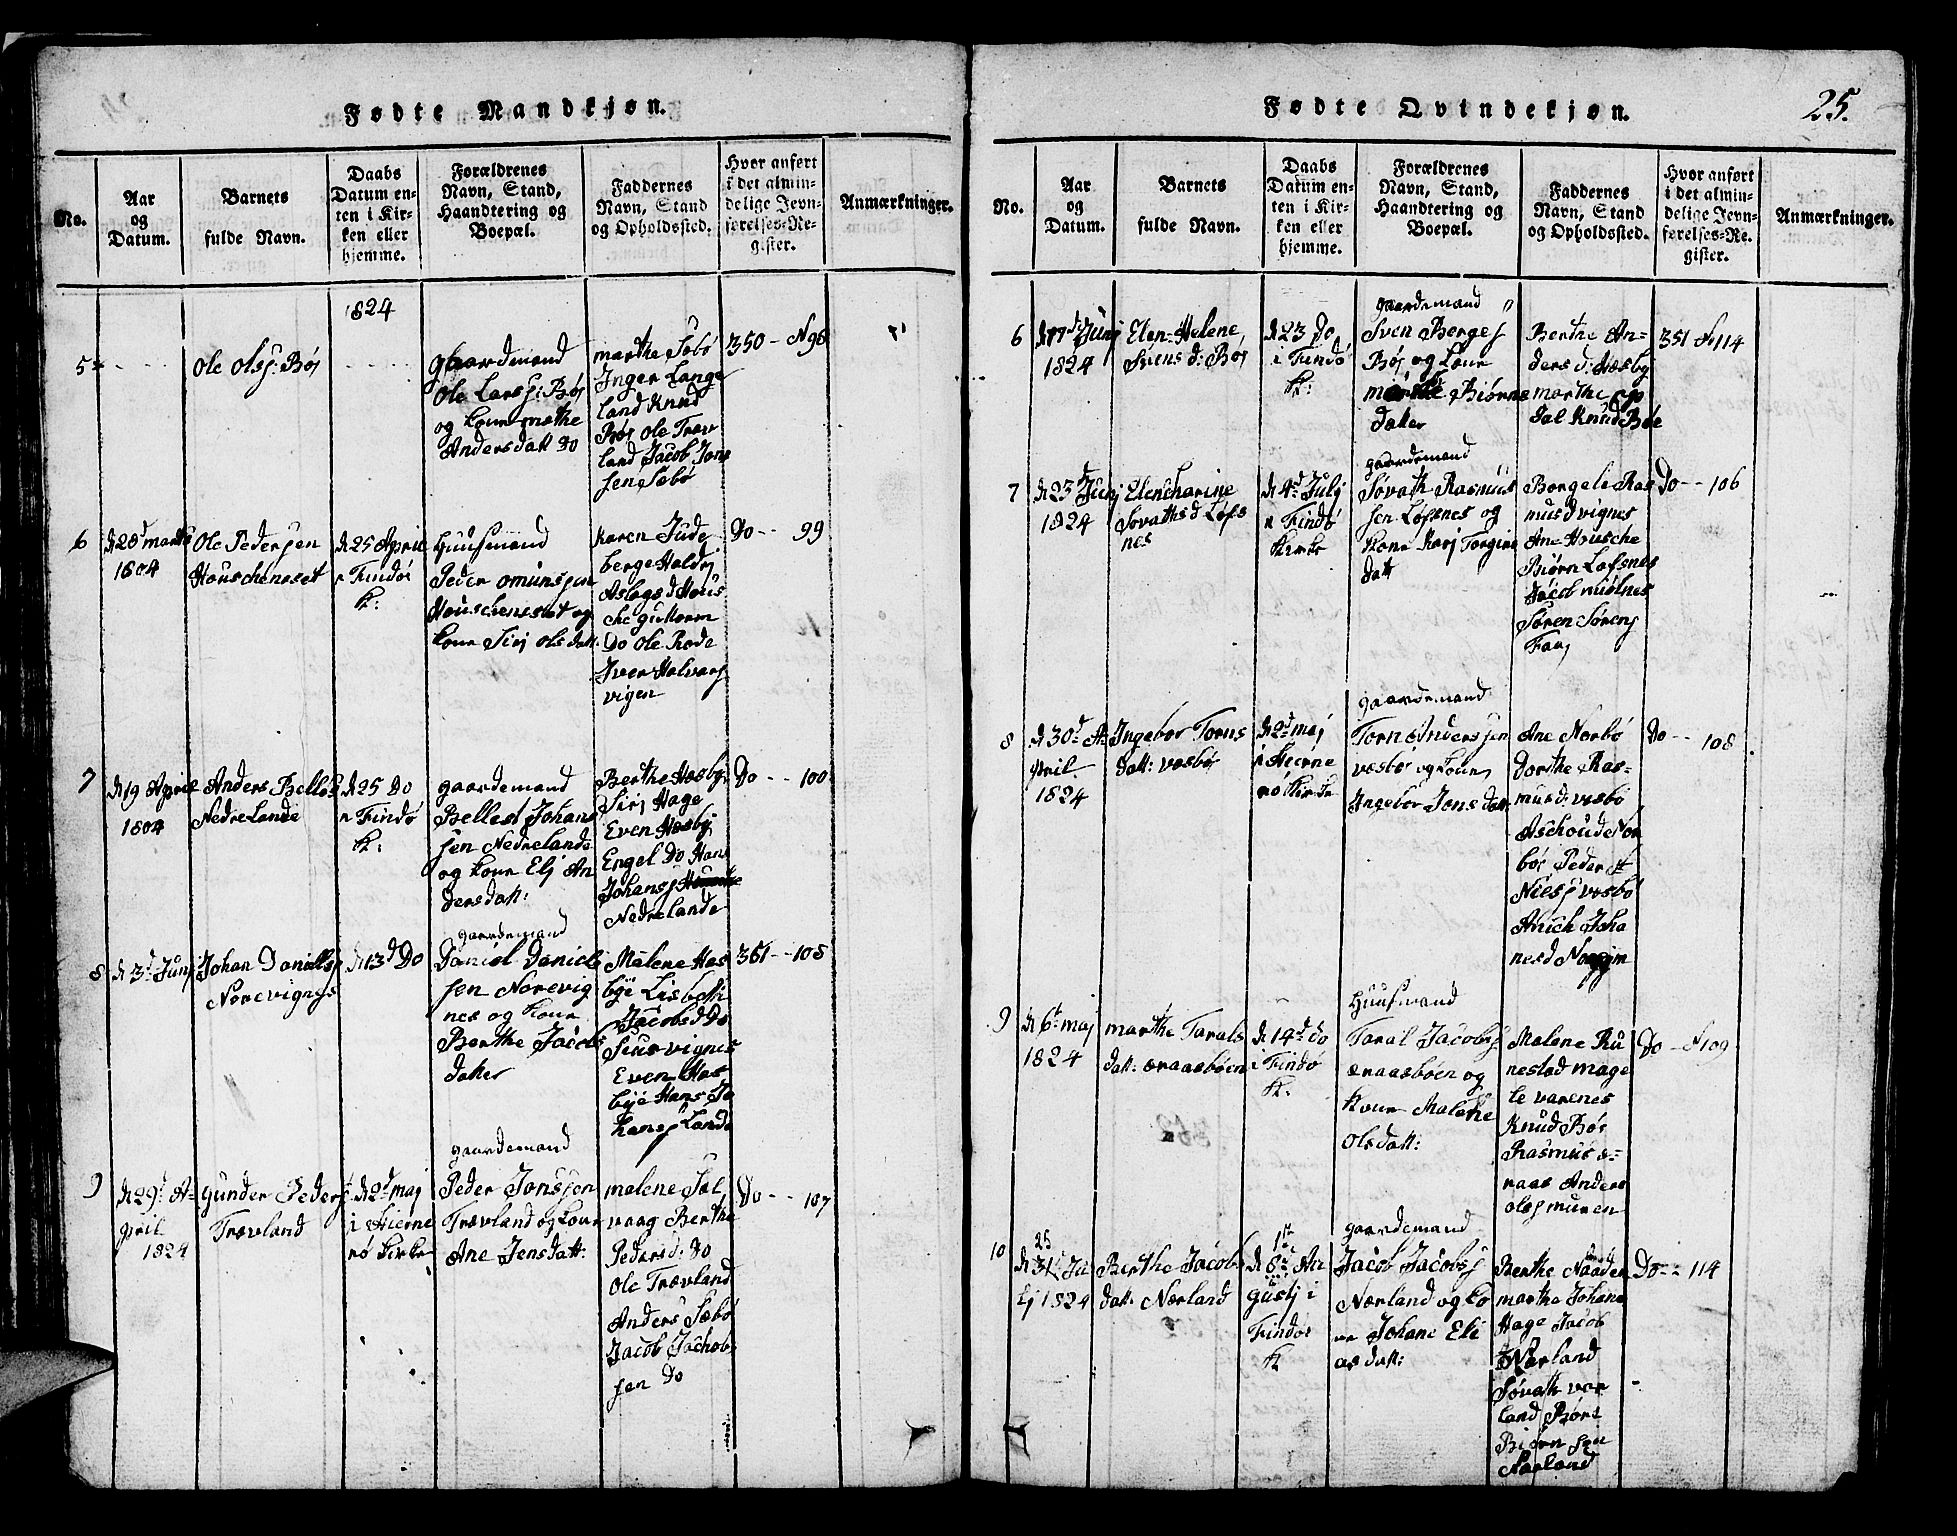 Fødte Mandkjøn.
No.
Aar
og
Datum.
Barnets
fulde Navn.
Daabs
Datum en-
ten i Kir-
ken eller
hjemme.
Forældrenes
Navn, Stand,
Haandtering og
Boepæl.
Faddernes
Navn, Stand
og Opholdssted.
Hvor anført
i det almin-
delige Jevn-
førelses-Re-
gister.
Anmærkninger.
1824
5
Ole Olsj: Bøj
gaardemand
Ole Larsj: Bøj
og kone marthe
Andersdatt Do
marthe Sebø
Inger Lange
land Knud
Bøj Ole Træv
land Jacob Jons
sen Sebø
350 - N 98
6
d 28d marts
1804
Ole Pedersen
Houscheneset
d 25 April
i Findø
k:
Huusmand
Peder omunsen
Houscheneset og
kone Sirj Olsdatt.
Karen Jude
berge Haldoj
Aslags d Hous
che guttorm
Do Ole Rode
Iver Halvorsj
vigen
Do - 99
7
d 19 April
1804
Anders Bellesj
Nedrelande
d 25 Do
i Findø
k:
gaardemand
Bellest Johans
sen Nedrelande
og kone Elj An
dersdatt:
Berthe Hæsbye
Sirj Hage
Even Hæsbye
Engel Do Hans
Johansj
Nedrelande
Do - 100
8
d 3d Junj
Johan Danielsj
Norevignes
d 13d Do
gaardemand
Daniel Daniels
sen Norevig
nes og kone
Berthe Jacobs
dater
Malene Hæs
bye Lisbeth
Jacobsd Do
vignes
Even Hæs
bye Hans Jo
hansj Lande
351 - 105
9
d 29d A-
pril
1824
gunder Pedersj
Trævland
d 2d maj
i Hierne
rø Kirke
gaardemand
Peder Jonssen
Trævland og kone
Ane Jensdatt:
malene Sel
vaag Berthe
Pedersd: Do
Ole Trævland
Anders Sæbø
Jacob Jachob
sen Do
Do - 107
Fødte Qvindekjøn.
25.
No.
Aar
og
Datum.
Barnets
fulde Navn.
Daabs
Datum en-
ten i Kir-
ken eller
hjemme.
Forældrenes
Navn, Stand,
Haandtering og
Boepæl.
Faddernes
Navn, Stand
og Opholdssted.
Hvor anført
i det almin-
delige Jevn-
førelses-Re-
gister.
Anmærkninger.
6
d 17d Junj
1824
Elen Helene
Svens d: Bøj
d 23 Do
i Findø
k:
gaardemand
Sven Bergesj
Bøj og kone
marthe Biørns
dater
Berthe An-
ders d: Hæsby
marthe Op
dal Knud Bøe
351 N 114
7
d 23d Junj
1824
Elen Charine
Sovaths d Løfs
nes
d 4d Julj
i Findø
Kirke
gaardemand
Søvath Rasmus
sen Løfsnes og
kone Karj Torgirs
datt
Borgele Ras
musd vignes
Ane Housche
Biørn Løfsnes
Jacob miølnes
Søren Sørensj
Faaj
Do - 106
8
d 30d A-
pril
1824
Ingebor Torns
datt: vesbø
d 2d maj
i Hierne
rø Kirke
gaardemand
Torn Anderssen
vesbø og kone
Ingebor Jonsdatt
Ane Norbø
Dorthe Ras-
musd: vesbø
Aschoude Nor
bø Peder
Nielsj vesbø
Anich Joha
nesd
Do - 108
9
d 6t maj
1824
marthe Tarals
datt: æraasbøen
d 14d do
i Findø
k:
Huusmand
Taral Jacobsj
æraasbøen og
kone Malene
Olsdatt:
Malene Ru
nestad mage
le varenes
Knud Bøe
Rasmus æ-
raas Anders
olsj muren
Do - N 109
10
25
d 31d Ju
lj 1824
Berthe Jacobs
datt: Nærland
1st
d 8d Au
gustj i
Findø
k
gaardemand
Jacob Jacobsj
Nærland og ko
ne Johane Eli
as datt:
Berthe Naaden
marthe Johans
Hage Jacob
Nærland
Søvath vor
land Børe
Biørn sen
Nærland
Do - 114